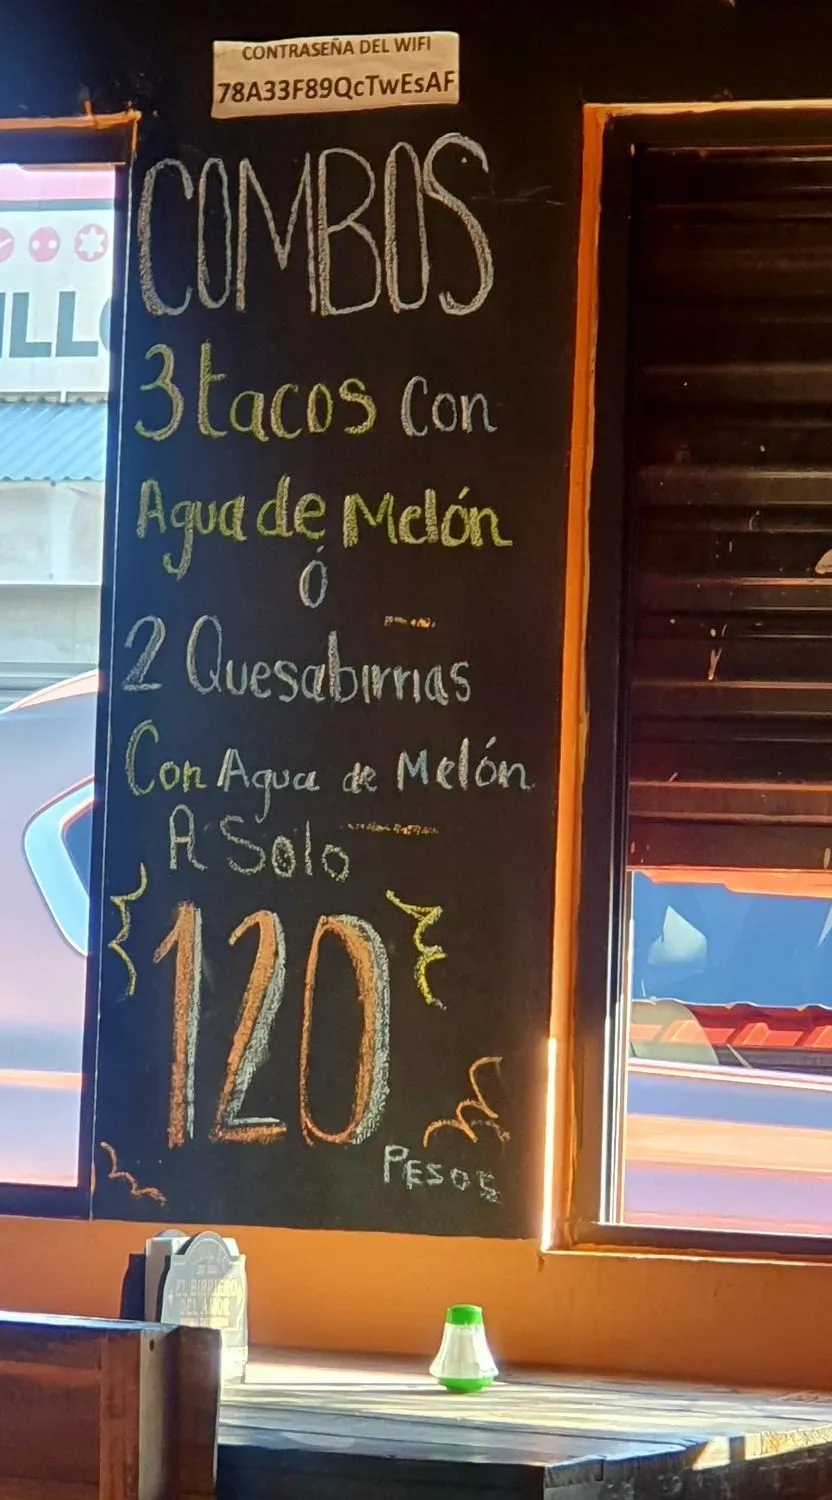 CONTRASEÑA DEL WIFI
78A33F89QcTwEsAF
COMBOS
3 tacos Con
Agua de Melón
Ó
2 Quesabirrias
Con Agua de Melón
A Solo
120
PESOS
ILL
EL BIRRIERO
DEL AMOR